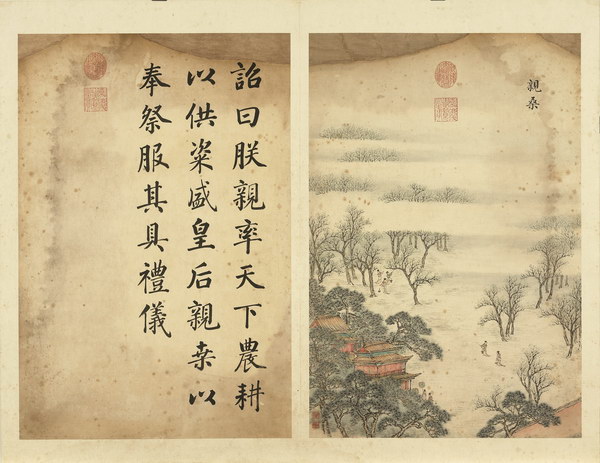 親桑
詔曰朕親率天下農耕
以供粢盛皇后親桑以
奉祭服其具禮儀